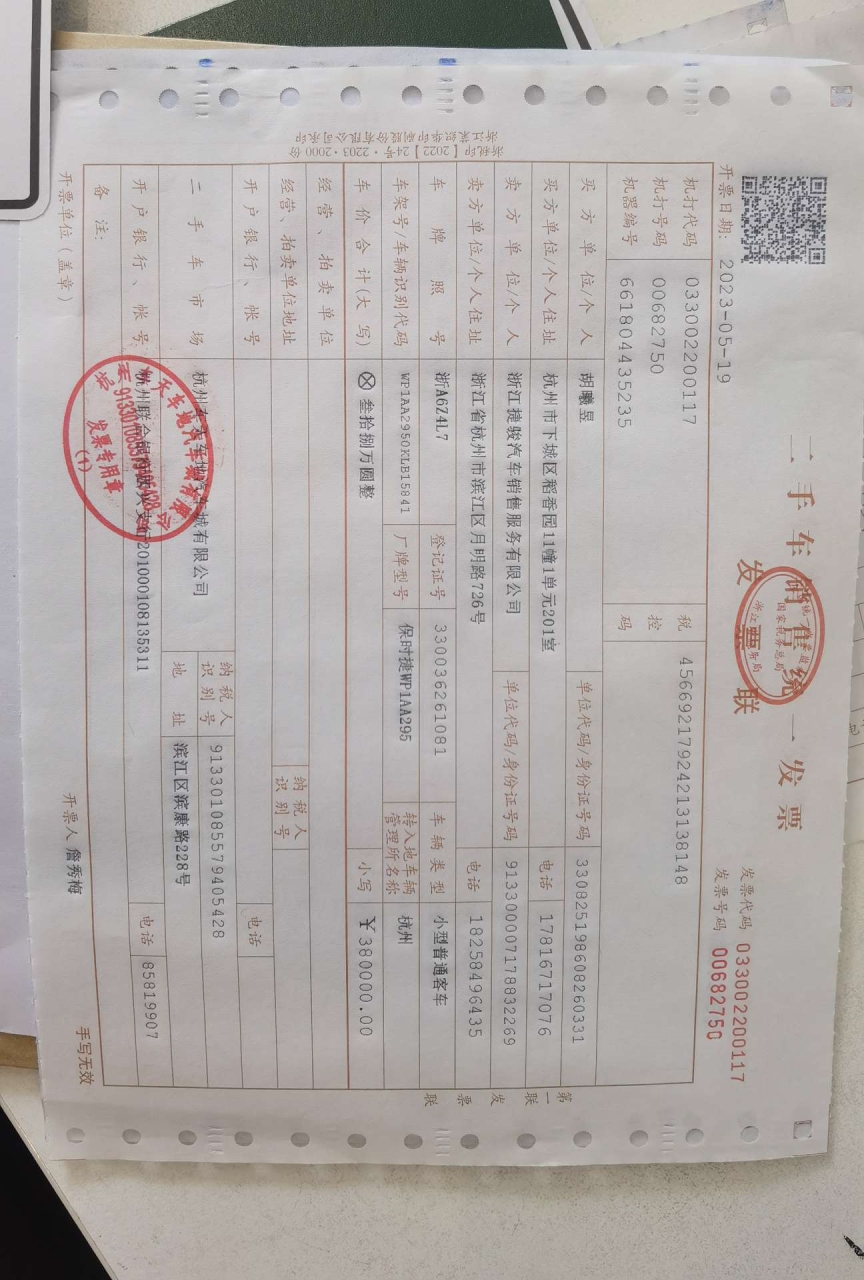 二手车销售统一发票
发票联
发票代码 033002200117
发票号码 00682750
开票日期: 2023-05-19
机打代码 033002200117
机打号码 00682750
机器编号 661804435235
税控码 45669217924213138148
买方单位/个人 胡曦昱 单位代码/身份证号码 330825198608260331
买方单位/个人住址 杭州市下城区稻香园11幢1单元201室 电话 17816717076
卖方单位/个人 浙江捷骏汽车销售服务有限公司 单位代码/身份证号码 913300007178832269
卖方单位/个人住址 浙江省杭州市滨江区月明路726号 电话 18258496435
车牌照号 浙A6Z4L7 登记证号 330036261081 车辆类型 小型普通客车
车架号/车辆识别代码 WP1AA2950KLB15841 厂牌型号 保时捷WP1AA295 转入地车辆管理所名称 杭州
车价合计(大写) ⊗叁拾捌万圆整 小写 ￥380000.00
经营、拍卖单位
经营、拍卖单位地址 纳税人识别号
开户银行、帐号 电话
二手车市场 纳税人识别号 913301085579405428
地址 滨江区滨康路228号
开户银行、帐号 201000108135311 电话 85819907
备注:
开票单位(盖章) 开票人 詹秀梅 手写无效
第一联 发票联
浙税印【2022】24号·2203·2000份
国家税务总局
发票专用章
(1)